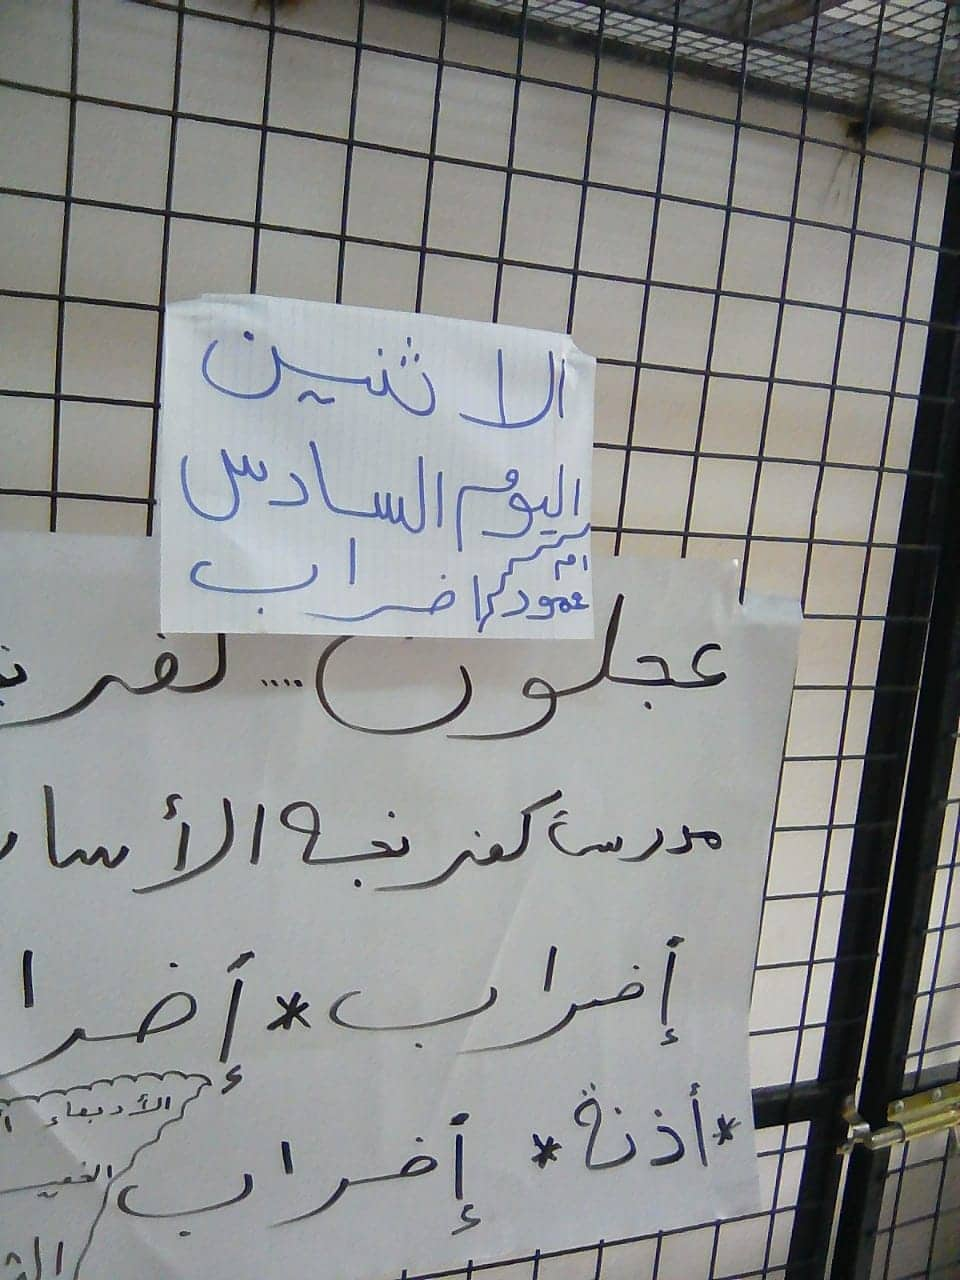 الاثنين
اليوم السادس
ام
عمود اضراب
عجلون .... كفرنج
مدرسة كفرنجة الأسا
إضراب * إضرا
* أذنة * إضراب
الأربعاء
الخميس